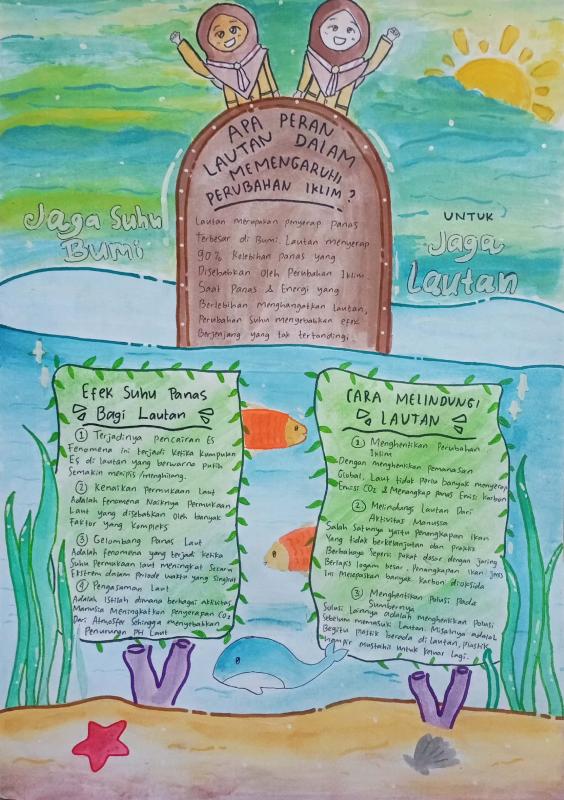 APA PERAN
LAUTAN DALAM
MEMENGARUHI
PERUBAHAN IKLIM ?
Lautan merupakan penyerap panas
Terbesar di Bumi. Lautan menyerap
90% Kelebihan panas yang
Disebabkan Oleh Perubahan Iklim
Saat Panas & Energi yang
Berlebihan Menghangatkan Lautan,
Perubahan Suhu menyebabkan efek
Berjenjang yang tak tertandingi
Jaga Suhu
Bumi
UNTUK
Jaga
Lautan
Efek Suhu Panas
Bagi Lautan
① Terjadinya pencairan Es
Fenomena ini terjadi ketika kumpulan
Es di lautan yang berwarna putih
Semakin menipis /menghilang.
② Kenaikan Permukaan Laut
Adalah Fenomena Naiknya Permukaan
Laut yang disebabkan oleh banyak
Faktor yang Kompleks
③ Gelombang Panas Laut
Adalah fenomena yang terjadi ketika
Suhu Permukaan laut meningkat secara
Ekstrem dalam periode waktu yang singkat
④ Pengasaman Laut
Adalah Istilah dimana berbagai aktivitas
Manusia Meningkatkan Penyerapan CO2
Dari Atmosfer Sehingga menyebabkan
Penurunan PH Laut
CARA MELINDUNGI
LAUTAN
① Menghentikan Perubahan
Iklim
Dengan menghentikan pemanasan
Global, Laut tidak Perlu banyak menyerap
Emisi CO2 & Menangkap panas Emisi karbon
② Melindungi Lautan Dari
Aktivitas Manusia
Salah Satunya yaitu Penangkapan Ikan
Yang tidak berkelanjutan dan praktik
Berbahaya Seperti pukat dasar dengan jaring
Berlapis logam besar. Penangkapan Ikan jenis
Ini Melepaskan banyak karbon dioksida
③ Menghentikan Polusi Pada
Sumbernya
Solusi lainnya adalah menghentikan polusi
Sebelum memasuki Lautan. Misalnya adalah
Begitu plastik berada di lautan, plastik
Hampir mustahil untuk keluar lagi.